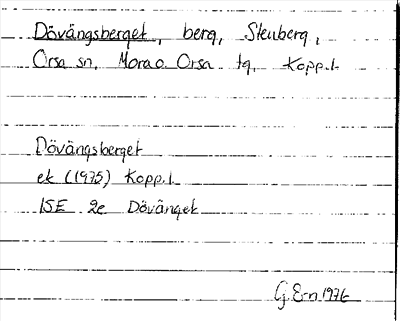 Dövängsberget, berg, Stenberg,
Orsa sn, Mora o Orsa tg, Kopp.l.
Dövängsberget
ek (1975) Kopp.l.
15E 2e Dövänget
G. E-n 1976